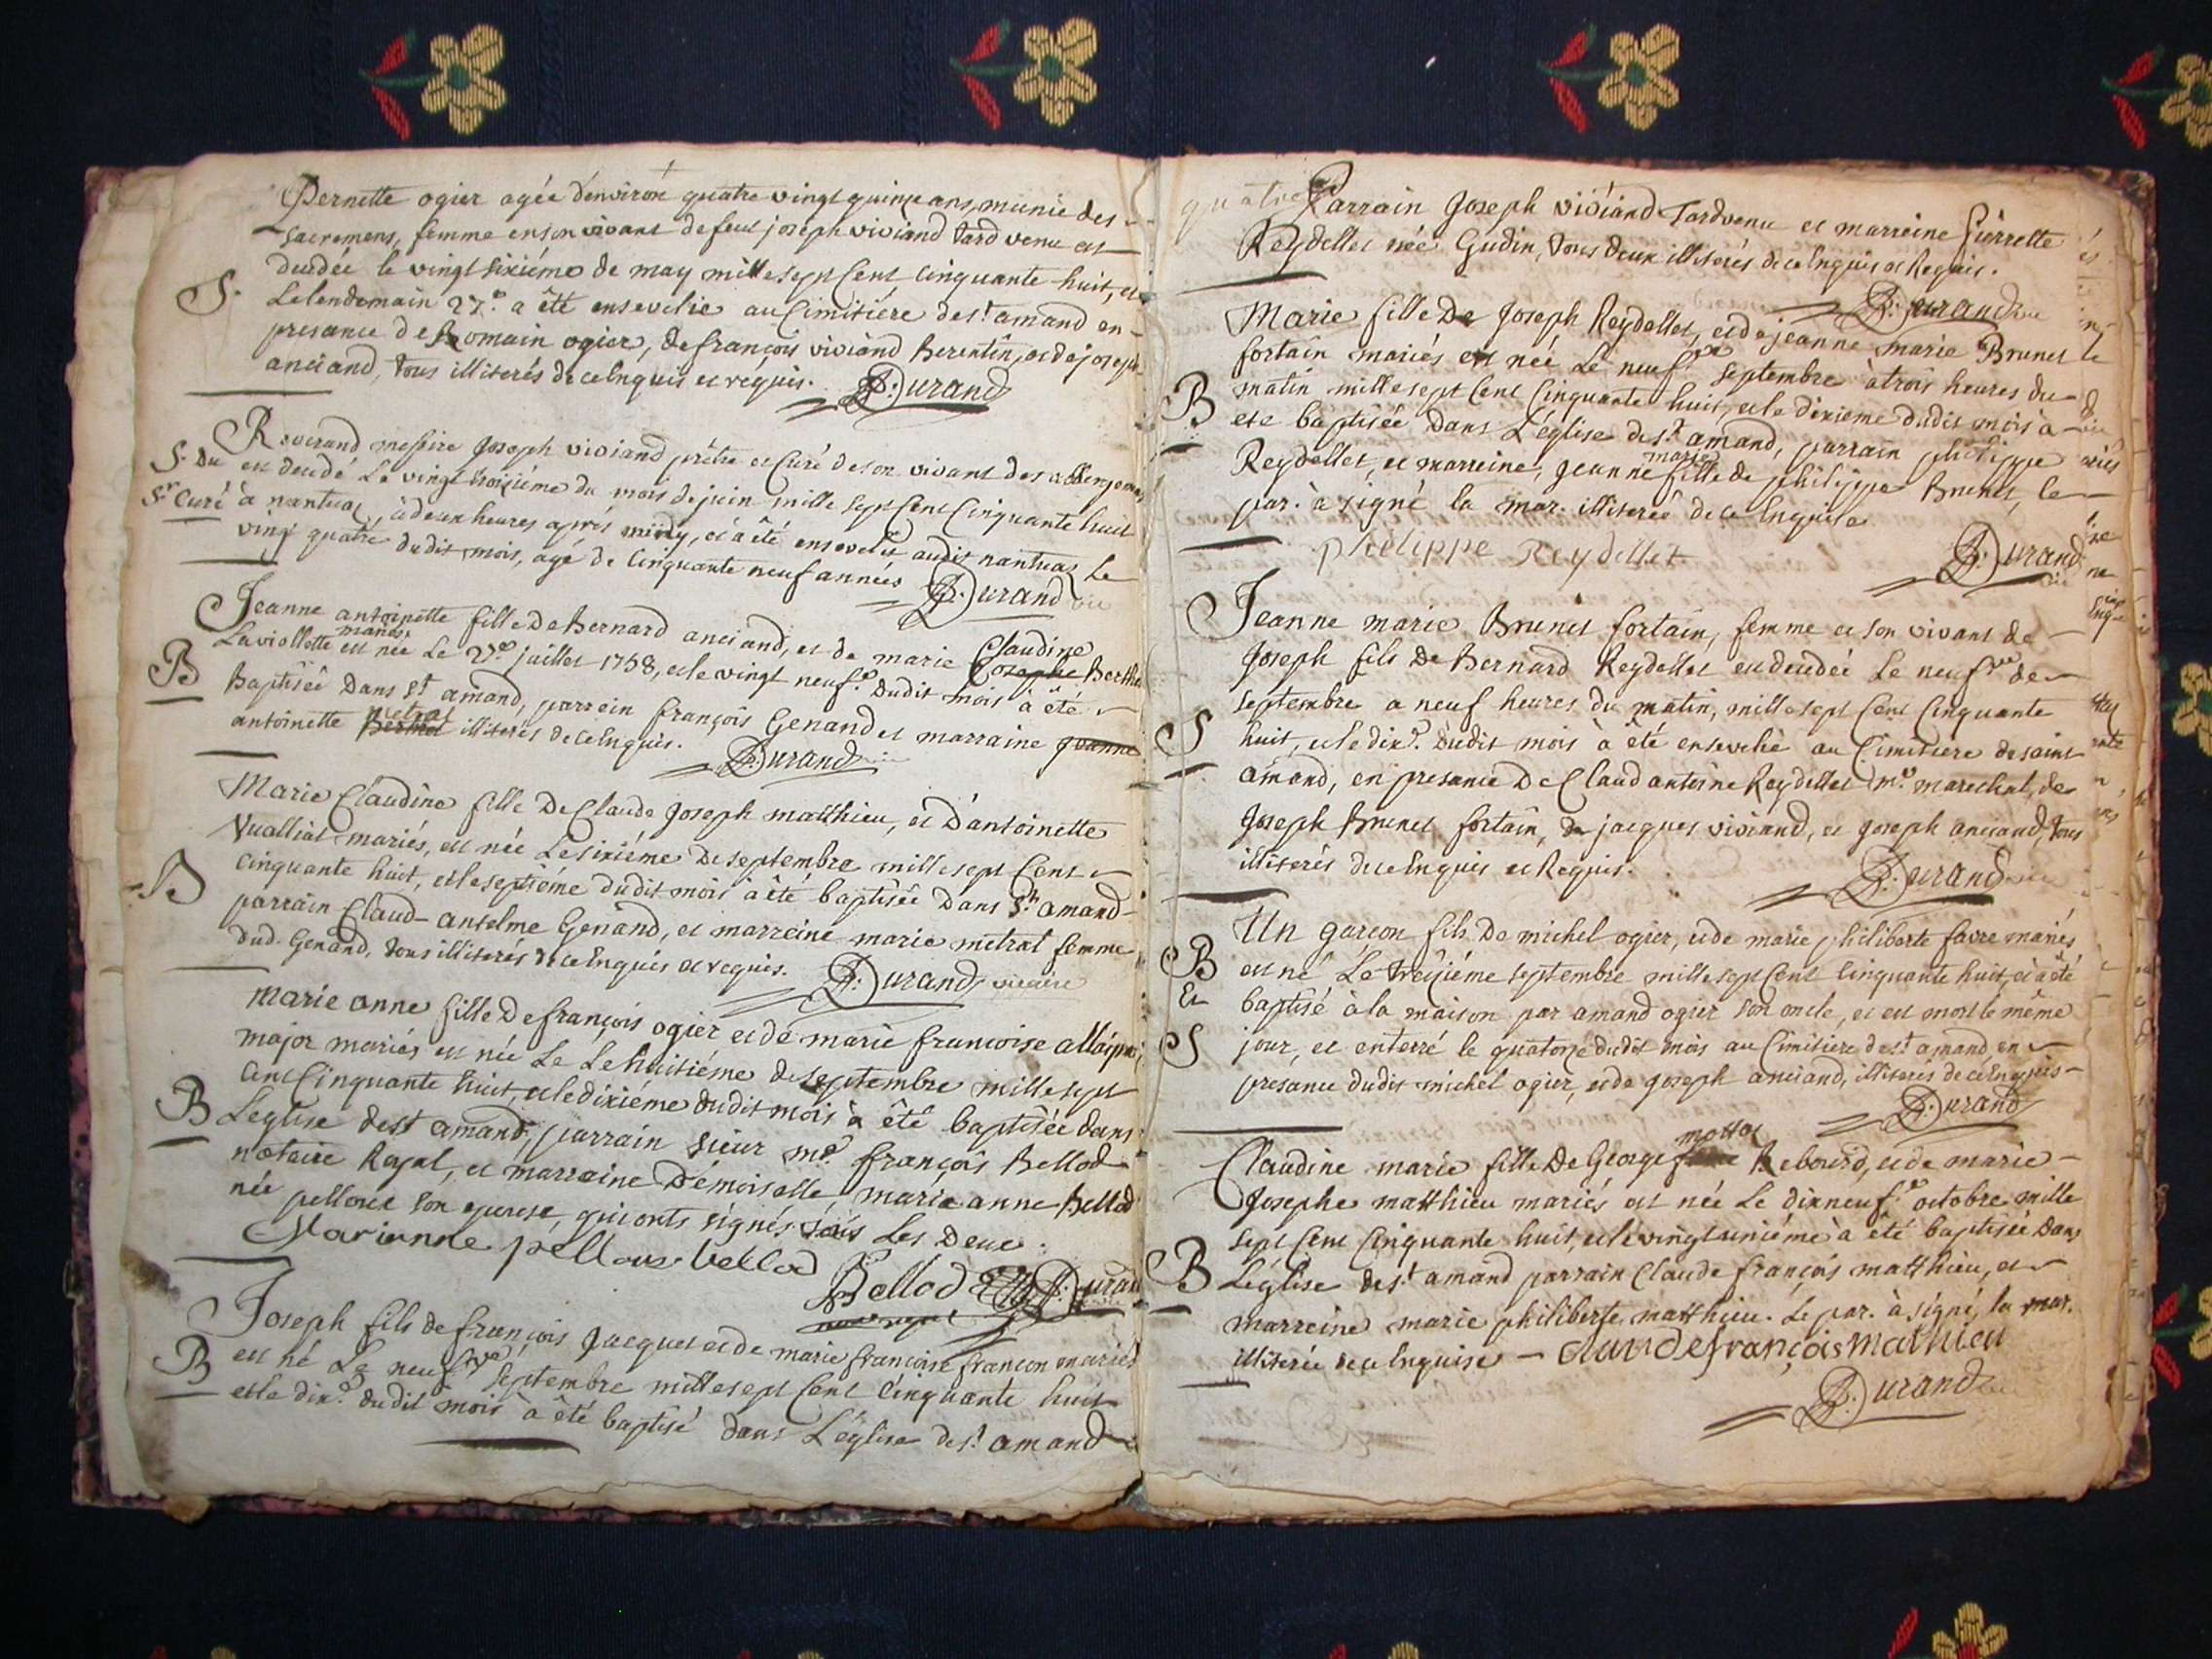 Pernette ogier agée d'environ quatre vingt quinze ans, munie des
sacremens, femme en son vivant de feu joseph viviand tard venu est
decédée le vingt sixiéme de may mille sept cent cinquante huit, et
S. Lelendemain 27.e a été ensevelie au Cimitière de st. amand en
presance de Romain ogier, de françois viviand Berentin, et de joseph
anciand, tous illiterés de ce Enquis et requis. D. Durand
Reverand messire Joseph viviand prêtre et Curé de son vivant des
S. Du est decedé Le vingt troisiéme du mois de juin mille sept Cent Cinquante huit
Sr Curé à nantua, à deux heures aprés midy, et à été ensevelit audit nantua, Le
vingt quatre dudit mois, agé de Cinquante neuf années D. Durand vic
Jeanne antoinette fille De Bernard anciand, et de marie Claudine
Josephe Berthe
Laviollette mariés est née Le 27.e juillet 1758, et le vingt neuf.e dudit mois à été
B Baptisée Dans st amand, parrein françois Genand et marraine jeanne
antoinette metral illiterés de ce Enquis. D. Durand vic
Marie Claudine fille De Claude Joseph matthieu, et d'antoinette
Vualliat mariés, est née Le sixiéme De septembre mille sept Cent
B Cinquante huit, et le septiéme dudit mois à été baptisée Dans St. amand
parrain Claud-anselme Genand, et marreine marie metral femme
dud. Genand, tous illiterés de ce Enquis et requis. D. Durand vicaire
Marie anne fille De françois ogier et de marie francoise
major mariés est née Le Le huitiéme de septembre mille sept
Cent Cinquante huit, et le dixiéme dudit mois à été baptisée dans
B Leglise de st amand, parrain sieur me. françois Bellod
notaire Royal, et marraine Démoiselle, marie anne Bellod
née pelloux son epouse, qui onts signés Les Deux.
Marianne pelloux bellod Bellod D. Durand
Joseph fils de françois Jacquet et de marie francoise françon mariés
B est né Le neufme septembre mille sept Cent Cinquante huit
et le dix.e dudit mois à été baptisé dans L'église de st. amand
quatre
Parrain Joseph viviand Tardvenu et marreine Pierrette
Reydellet née Gudin, tous deux illiterés de ce Enquis et Requis.
D. Durand vic
Marie fille De Joseph Reydellet, et de jeanne marie Brunet
fortain mariés est née Le neufme septembre à trois heures du
B matin mille sept Cent Cinquante huit, et le dixieme dudit mois à
eté baptisée dans L'église de st. amand, parrain philippe
Reydellet, et marreine, Jeanne marie fille de philippe Brunet, le
par. à signé la mar. illiterée de ce Enquise
philippe Reydellet D. Durand vic
Jeanne marie Brunet fortain, femme et son vivant de
Joseph fils De Bernard Reydellet est decedée Le neufme de
septembre a neuf heures du matin, mille sept Cent Cinquante
S huit, et le dix.e dudit mois à été ensevelie au Cimitiere de saint
amand, en presance De Claud antoine Reydellet me. marechal, de
Joseph Brunet fortain, de jacques viviand, et Joseph anciand, tous
illiterés de ce Enquis et Requis. D. Durand vic
Un garcon fils De michel ogier, et de marie philiberte favre mariés
B est né Le treiziéme septembre mille sept Cent Cinquante huit, et à été
Et baptisé à la maison par amand ogier son oncle, et est mort le même
S jour, et enterré le quatorze dudit mois au Cimitiere de st amand en
presance dudit michel ogier, et de Joseph anciand, illiterés de ce Enquis
D. Durand
Claudine marie fille De George mottet Rebourd, et de marie
Josephe matthieu mariés est née Le dix neuf.e octobre mille
sept Cent Cinquante huit, et le vingt uniéme à été baptisée dans
B L'église de st. amand parrain Claude françois matthieu, et
marreine marie philiberte matthieu. Le par. à signé, la mar.
illiterée de ce Enquise - Claude françois mathieu
D. Durand vic